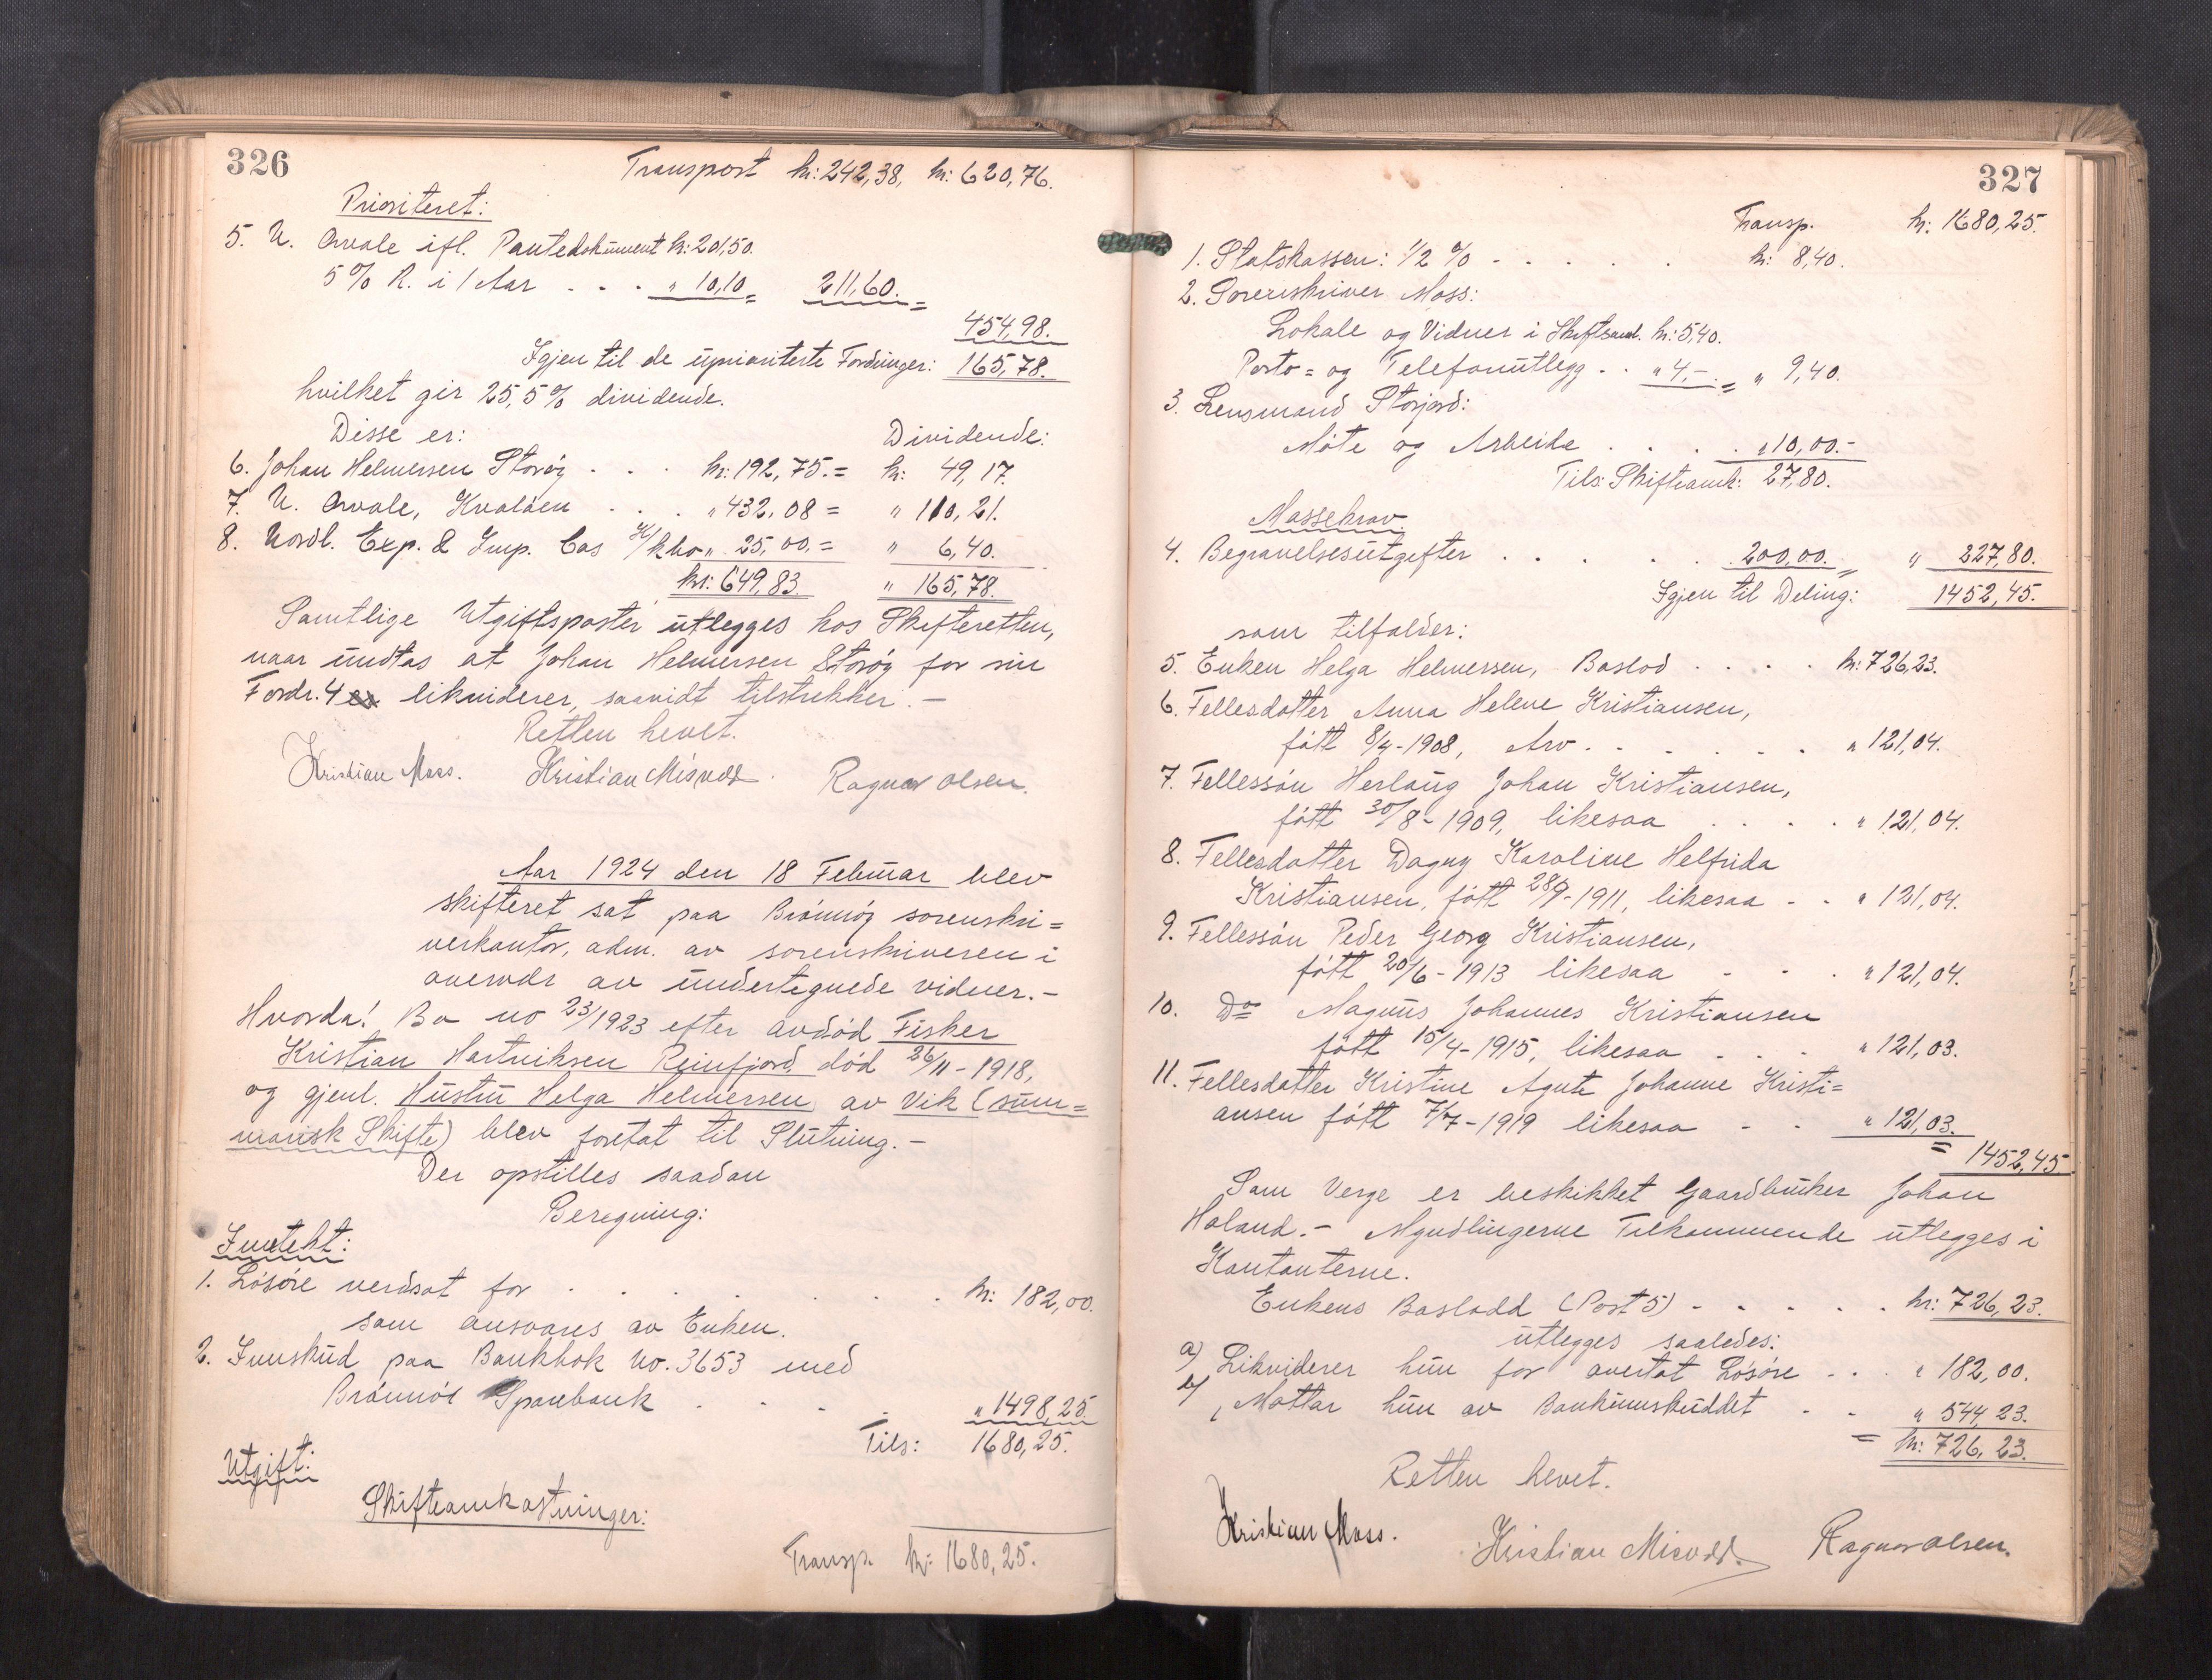 326
Transport kr: 242,38, kr: 620,76.
Prioritert:
5. N. Arvale ifl. Pantedokument kr: 201,50.
5 % R. i 1 Aar . . . " 10,10 = 211,60. =
454,98.
Igjen til de uprioriterte Fordringer: 165,78.
hvilket gir 25,5 % dividende.
Disse er: Dividende:
6. Johan Helmersen Storøy . . . kr: 192,75. = kr: 49,17.
7. N. Arvale, Kvaløen . . . " 432,08 = " 110,21.
8. Nordl. Exp. & Imp. Cos " 25,00. = " 6,40.
kr: 649,83. " 165,78.
Samtlige Utgiftsposter utlegges hos Skifteretten,
naar undtas at Johan Helmersen Storøy for sin
Fordr. 4 likviderer, saavidt tilstrekker. –
Retten hevet.
Kristian Moss. Kristian Misvær. Ragnar Olsen.
Aar 1924 den 18 Februar blev
skifteret sat paa Brønnøy sorenskri=
verkontor, adm. av sorenskriveren i
overvær av undertegnede vidner. –
Hvorda! Bo no 23/1923 efter avdød Fisker
Kristian Hartviksen Reinfjord, død 26/11 - 1918,
og gjenl. Hustru Helga Helmersen av Vik (sum=
marisk Skifte) blev foretat til Slutning. –
Der opstilles saadan
Beregning:
Inntekt:
1. Løsøre verdsat for . . . . . . . kr: 182,00.
som ansvares av Enken.
2. Innskud paa Bankbok no. 3653 med
Brønnøi Sparebank . . . . " 1498,25.
Tils: 1680,25.
Utgift:
Skifteomkostninger:
Transp. kr: 1680,25.
327
Transp. kr. 1680,25.
1. Statskassen: 1/2 % - . . . . kr: 8,40.
2. Sorenskriver Moss:
Lokale og Vidner i Skiftesaml. kr: 5,40.
Porto= og Telefonutlegg . . " 4,-. = " 9,40.
3. Lensmand Storjord:
Møte og Arbeide . . . . " 10,00.-
Tils: Skifteomk: 27,80.
Massekrav.
4. Begravelsesutgifter . . . . . 200,00. = " 227,80.
Igjen til Deling: 1452,45.
som tilfalder:
5. Enken Helga Helmersen, Boslod . . . . kr: 726,23.
6. Fellesdatter Anna Helene Kristiansen,
født 8/4 - 1908, Arv . . . . . . " 121,04.
7. Fellessøn Herlaug Johan Kristiansen,
født 30/8 - 1909, likesaa . . . . " 121,04.
8. Fellesdatter Dagny Karoline Helfrida
Kristiansen, født 28/9 - 1911, likesaa - . " 121,04.
9. Fellessøn Peder Georg Kristiansen,
født 20/6 - 1913 likesaa - . . " 121,04.
10. Do Magnus Johannes Kristiansen
født 15/4 - 1915, likesaa . . . " 121,03.
11. Fellesdatter Kristine Agute Johanne Kristi=
ansen født 7/7 - 1919 likesaa - . " 121,03.
= 1452,45
Som Verge er beskikket Gaardbruker Johan
Holand. – Myndlingerne Tilkommende utlegges i
Kontanterne.
Enkens Boslodd (Post 5) - . . . . kr: 726,23.
utlegges saaledes:
a) Likviderer hun for overtat Løsøre . . . " 182,00.
b) Mottar hun av Bankinnskuddet - . " 544,23.
= kr: 726,23.
Retten hevet.
Kristian Moss. Kristian Misvær. Ragnar Olsen.